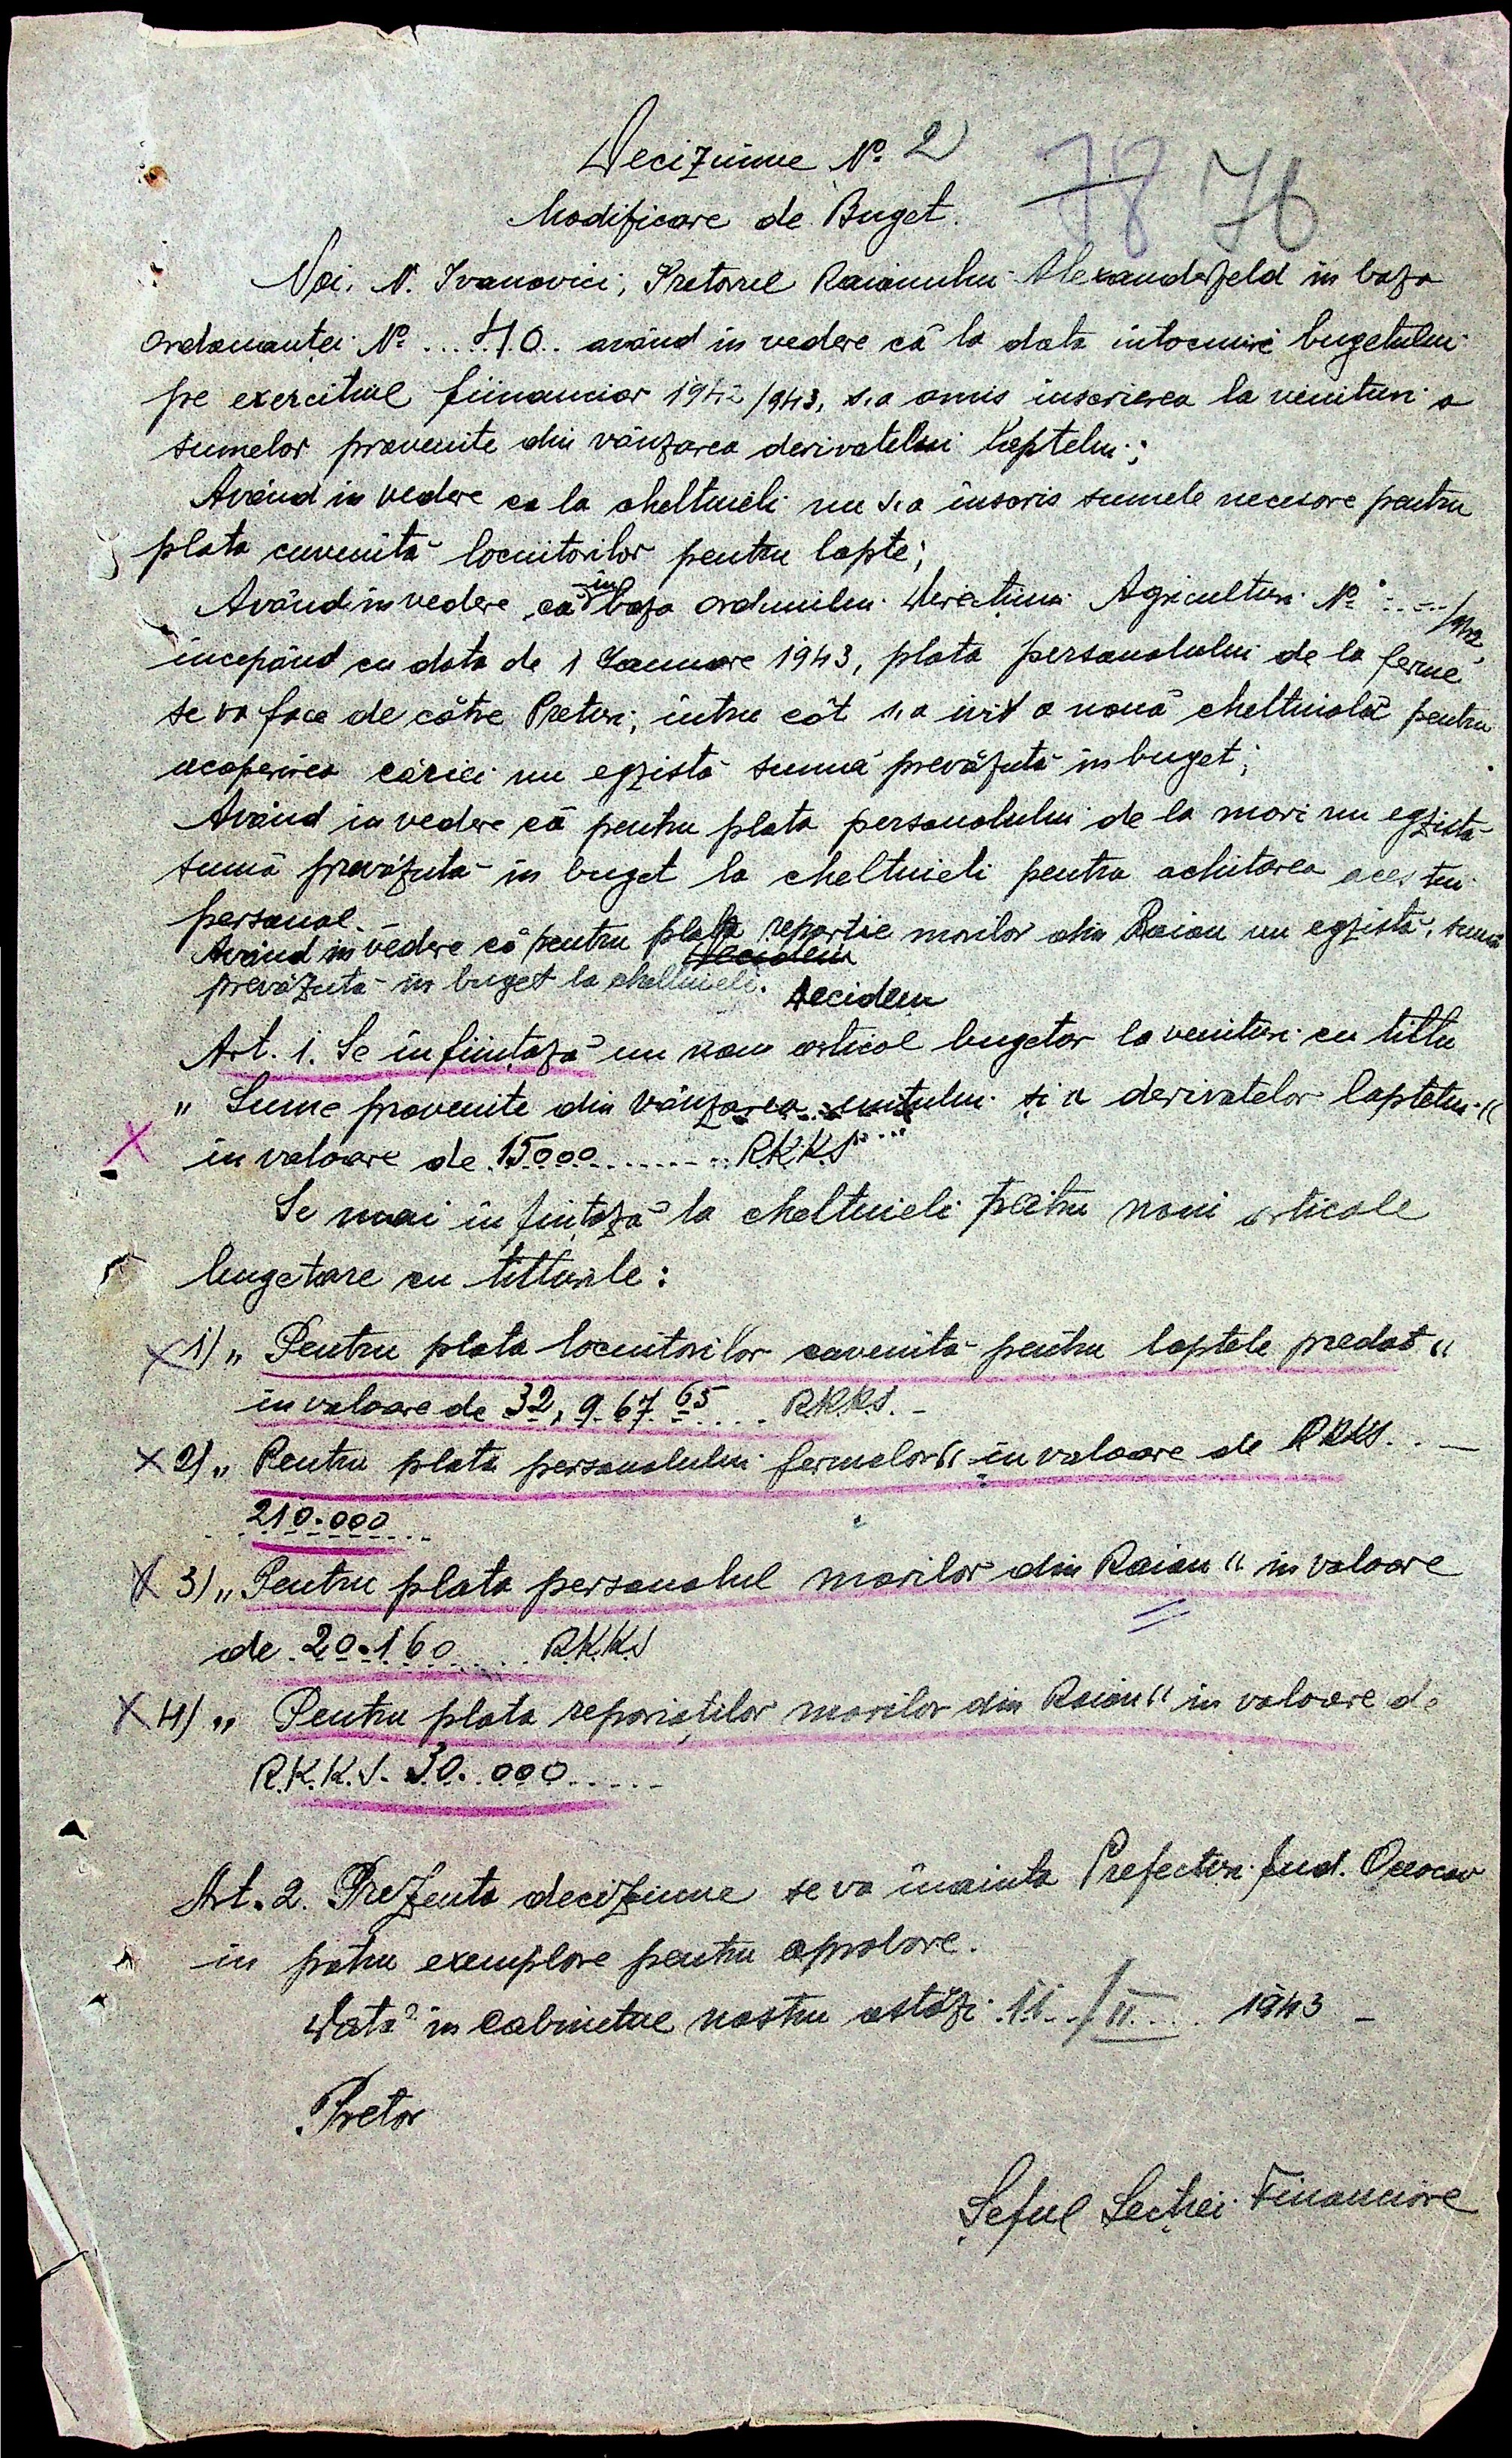 Deciziune No. 2
78 76
Modificare de Buget.
Noi, N. Ivanovici, Pretorul Raionului Alexanderfeld in baza
Ordonanței No ....40.. având in vedere că la data intocmirii bugetului
pe exercitiul finanuciar 1942/943, s,a omis inscrierea la venituri a
sumelor provenite din vânzarea derivatelui laptelui;
Având in vedere ca la cheltuieli nu s,a inscris sumele necesare pentru
plata cuvenită locuitorilor pentru lapte;
Având in vedere, că in baza ordinului Direcțiunii Agriculturi No ...../942,
incepând cu data de 1 Ianuare 1943, plata personalului de la ferme
se va face de către Preturi, intru cât s,a ivit o nouă cheltuială pentru
acoperirea căriei nu egzistă sumă prevăzută in buget;
Având in vedere că pentru plata personalului de la mori nu egzistă
sumă prevăzută in buget la cheltuieli pentru achitarea acestui
personal.
Având in vedere că pentru plata reparție morilor din Raion nu egzistă, sumă
Decidem
prevăzută in buget la cheltuieli. Decidem
Art. 1. Se inființază un nou articol bugetar la venituri cu titlu
„ Sume provenite din vânzarea untului și a derivatelor laptelui "
in valoare de .15000........... R.K.K.S....
Se mai inființază la cheltuieli patru noui articole
bugetare cu titlurile:
1) „ Pentru plata locuitorilor cuvenită pentru laptele predat "
in valoare de 32,967 65.... R.K.K.S.-
2) „ Pentru plata personalului fermelor" in valoare de RKKS..-
210.000...
3) „ Pentru plata personalul morilor din Raion " in valoare
de .20.160..... R.K.K.S
4) „ Pentru plata reparaților morilor din Raion" in valoare de
R.K.K.S. 30.000.....
Art. 2. Prezenta deciziune se va inainta Prefecturi Jud. Oceacov
in patru exemplare pentru aprobare.
Dată in Cabinetul nostru astăzi .11../II.... 1943 -
Pretor
Șeful Secției Financiare